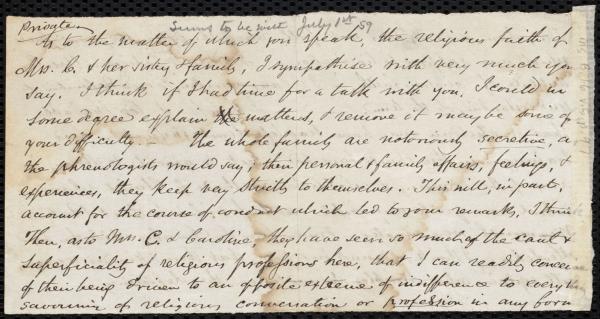 Private
Seems to be sent July 1st 59
As to the matter of which you speak, the religious faith of
Mrs. C. & her sister & family, I sympathise with very much you
say. I think if I had time for a talk with you, I could in
some degree explain the matters, & remove it may be some of
your difficulty — The whole family are notoriously secretive, as
the phrenologists would say; their personal & family affairs, feelings, &
experiences, they keep very strictly to themselves. This will, in part,
account for the course of conduct which led to your remarks, I think
Then, as to Mrs. C. & Caroline, they have seen so much of the cant &
superficiality of religious professions here, that I can readily conceive
of their being driven to an opposite extreme of indifference to everything
savouring of religious conversation or profession in any form